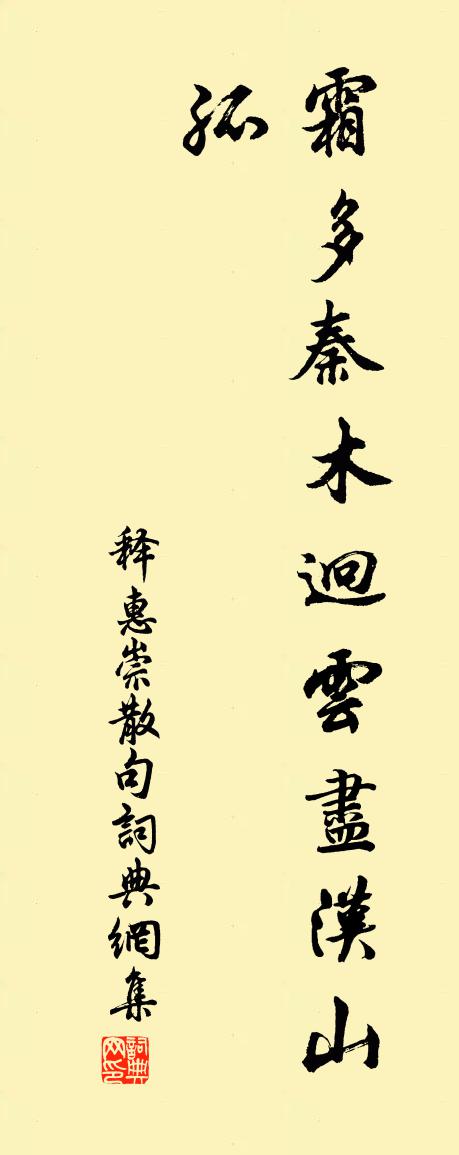 霜多秦木迥雲盡漢山
孤
释惠崇散句詞典網集
詞典网印